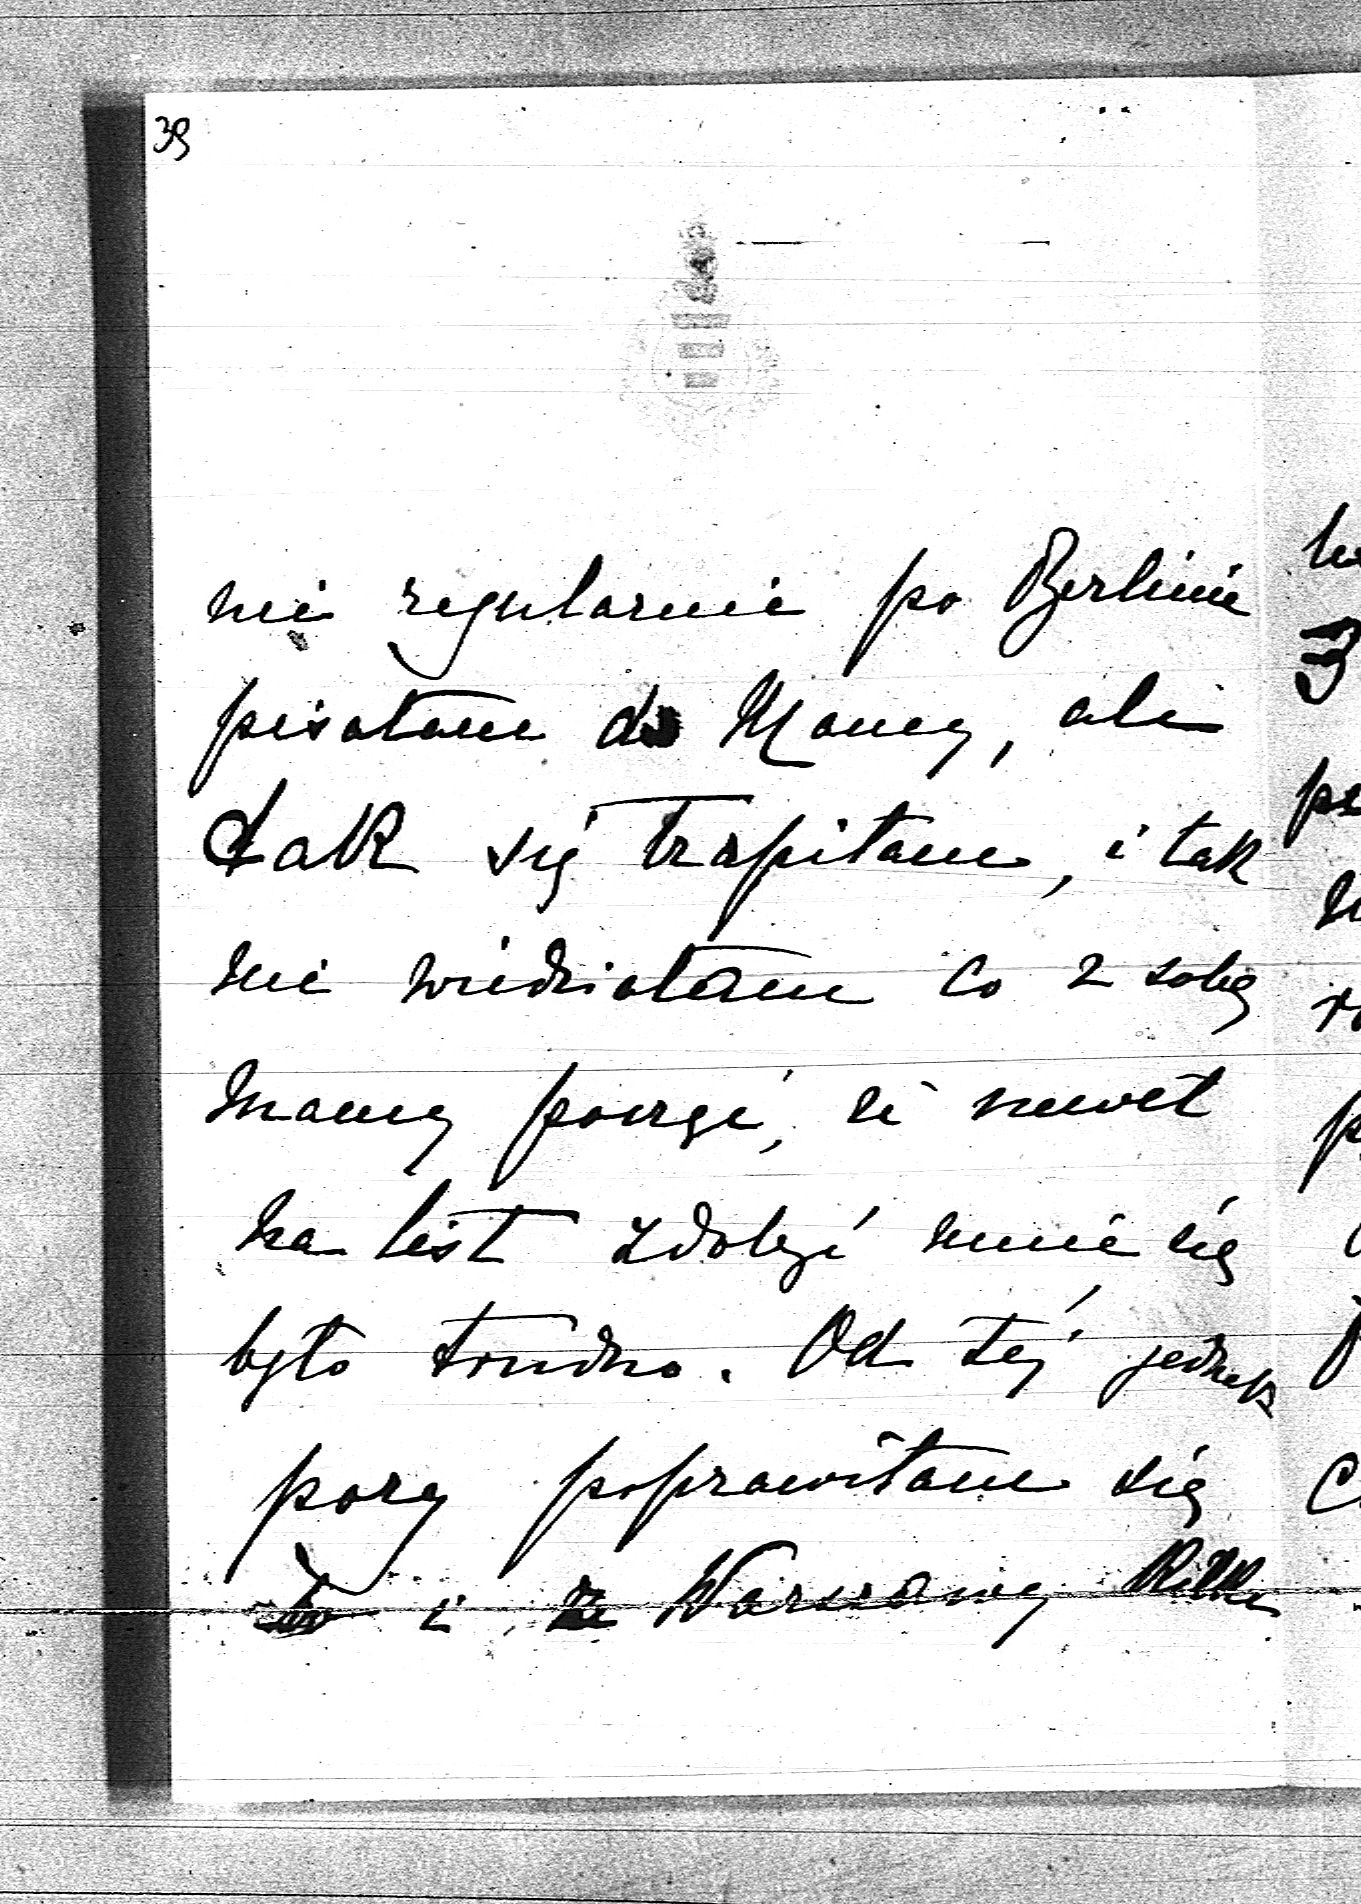 39
nie regularnie po Berlinie
pisałam do Mamy, ale
tak się trapiłam, i tak
nie wiedziałam co z sobą
mamy począć, że nawet
na list zdobyć mnie się
było trudno. Od tej jednak
pory poprawiłam się
i ze Warszawy kilka